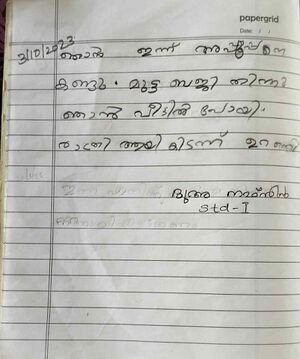 papergrid
Date: / /
3/10/2023
ഞാൻ ഇന്ന് അപ്പൂപ്പനെ
കണ്ടു. മുട്ട ബജ്ജി തിന്നു
ഞാൻ വീട്ടിൽ പോയി.
രാത്രി ആയി കിടന്ന് ഉറങ്ങി
ദുആ
Std-I